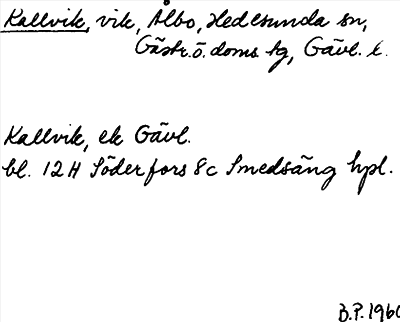 Kallvik, vik, Ålbo, Hedesunda sn,
Gästr.ö.doms hg, Gävl. l.
Kallvik, ek Gävl.
bl. 12H Söderfors 8c Smedsäng hpl.
B.P. 1960